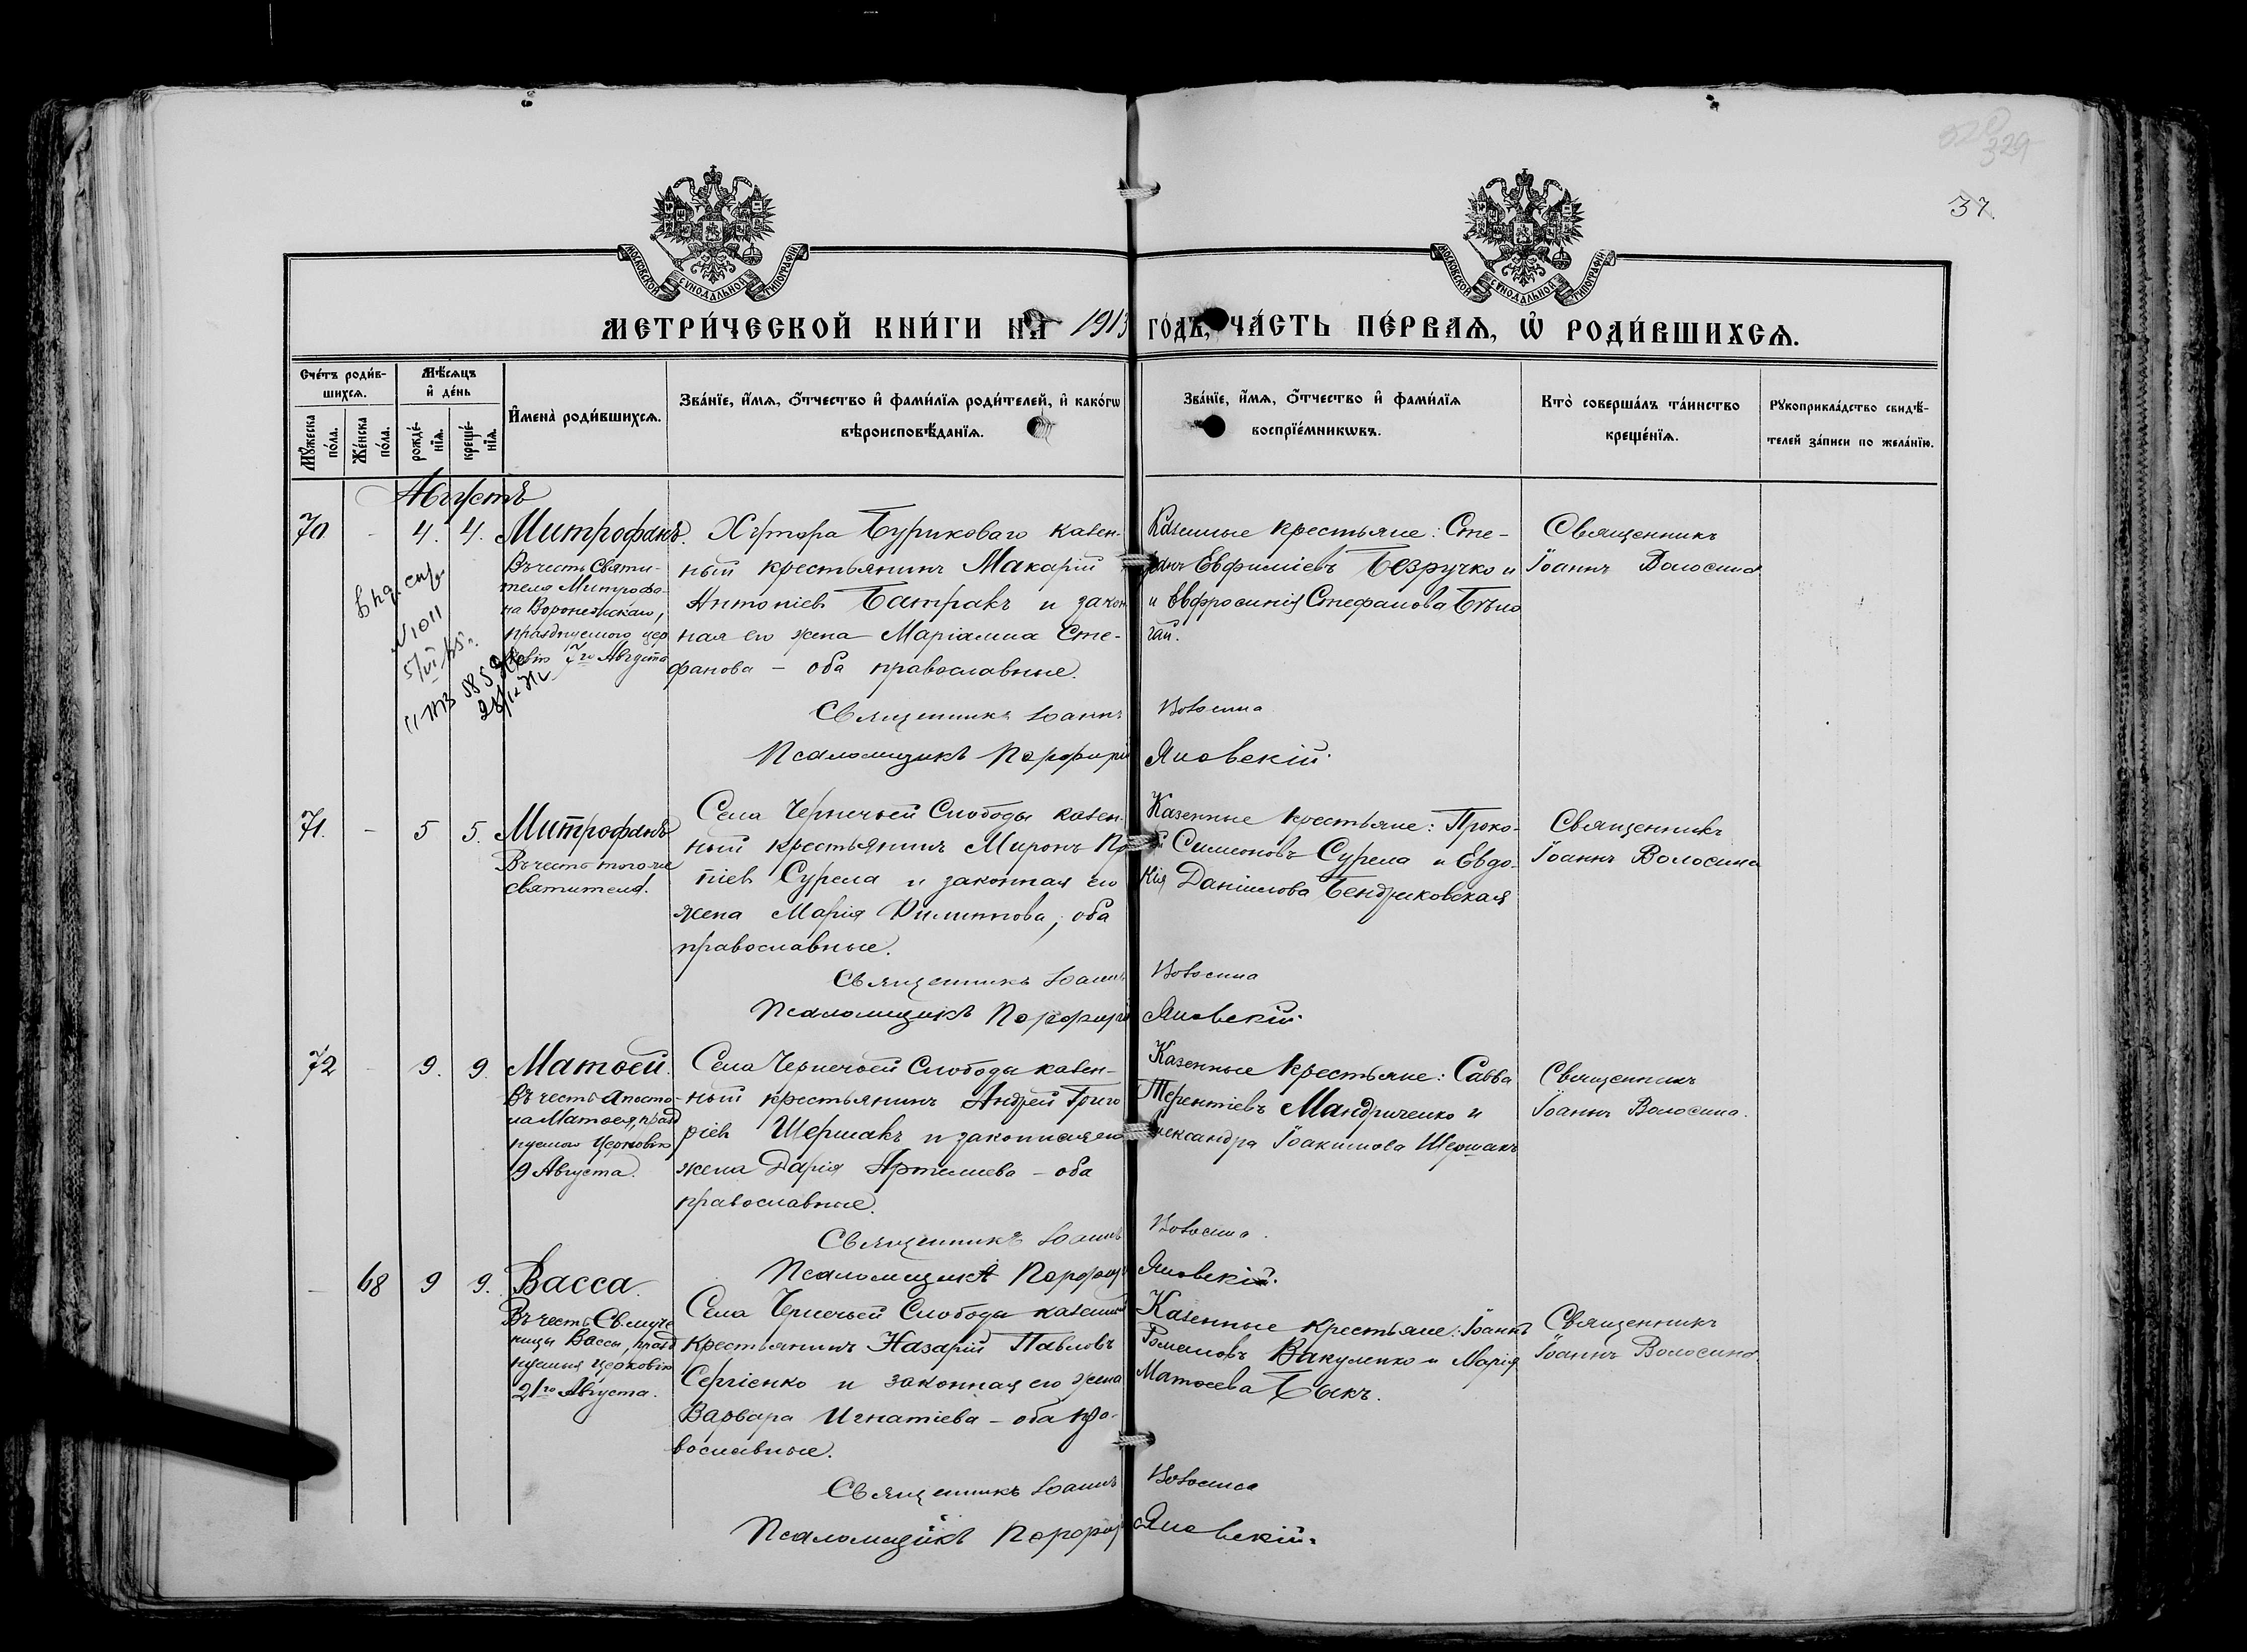 329
37.
МОСКОВСКОЙ СѴНОДАЛЬНОЙ ТИПОГРАФІИ
МОСКОВСКОЙ СѴНОДАЛЬНОЙ ТИПОГРАФІИ
МЕТРИ́ЧЕСКОЙ КНИ́ГИ НА 1913 ГО́ДЪ, ЧА́СТЬ ПЕ́РВАѦ, Ѡ҆ РОДИ́ВШИХСѦ.
Сче́тъ роди́в-
шихсѧ.
Мꙋ́жеска по́ла.
Же́нска по́ла.
Мѣ́сѧцъ
и҆ де́нь
рожде́-
нїѧ.
креще́-
нїѧ.
И҆мена̀ роди́вшихсѧ.
Зва́нїе, и҆́мѧ, ѻ҆́тчество и҆ фами́лїѧ роди́телей, и҆ како́гѡ
вѣроисповѣ́данїѧ.
Зва́нїе, и҆́мѧ, ѻ҆́тчество и҆ фами́лїѧ
воспрїе́мникѡвъ.
Кто̀ соверша́лъ та́инство
креще́нїѧ.
Рꙋкоприкла́дство свидѣ́-
телей за́писи по жела́нїю.
Августъ
70 - 4. 4. Митрофанъ.
Въ честь Святи-
теля Митрофа-
на Воронежскаго,
празднуемаго цер
ковію 7го Августа
N 1011
Хутора Бурикова­го казен-
ный крестьянинъ Макарій
Антоніевъ Батракъ и закон
ная его жена Маріамна Сте-
фанова - оба православные.
Казенные крестьяне: Сте-
фанъ Евфиміевъ Безручко и
и Евфросинія Стефанова Бѣло
гай.
Священникъ
Іоаннъ Волосина
Священникъ Іоаннъ Волосина
Псаломщикъ Порфирій Яновскій.
71. - 5 5. Митрофанъ
Въ честь того-же
святителя.
Села Чернечьей Слободы казен-
ный крестьянинъ Миронъ Про
піевъ Сурела и законная его
жена Марія Филиппова, оба
православные.
Казенные крестьяне: Проко-
пій Симеоновъ Сурела и Евдо-
кія Даніилова Бендриковская
Священникъ
Іоаннъ Волосина
Священникъ Іоаннъ Волосина
Псаломщикъ Порфирій Яновскій.
72 - 9. 9. Матѳей.
Въ честь Апосто-
ла Матѳея, празд
нуемаго Церковію
9 Августа.
Села Чернечьей Слободы казен-
ный крестьянинъ Андрей Григо
ріевъ Шершакъ и законная его
жена Дарія Артемиева - оба
православные.
Казенные крестьяне: Савва
Терентіевъ Мандриченко и
Александра Іоакимова Шершакъ
Священникъ
Іоаннъ Волосина.
Священникъ Іоаннъ Волосина.
Псаломщикъ Порфирій Яновскій.
- 68 9 9. Васса.
Въ честь Св. муче
ницы Вассы, празд
нуемыя Церковію
21го Августа.
Села Чернечьей Слободы казенный
крестьянинъ Назарій Павловъ
Сергіенко и законная его жена
Варвара Игнатіева - оба пра-
вославные.
Казенные крестьяне: Іоаннъ
Романовъ Вакуленко и Марія
Матѳеева Быкъ.
Священникъ
Іоаннъ Волосина
Священникъ Іоаннъ Волосина
Псаломщикъ Порфирій Яновскій.